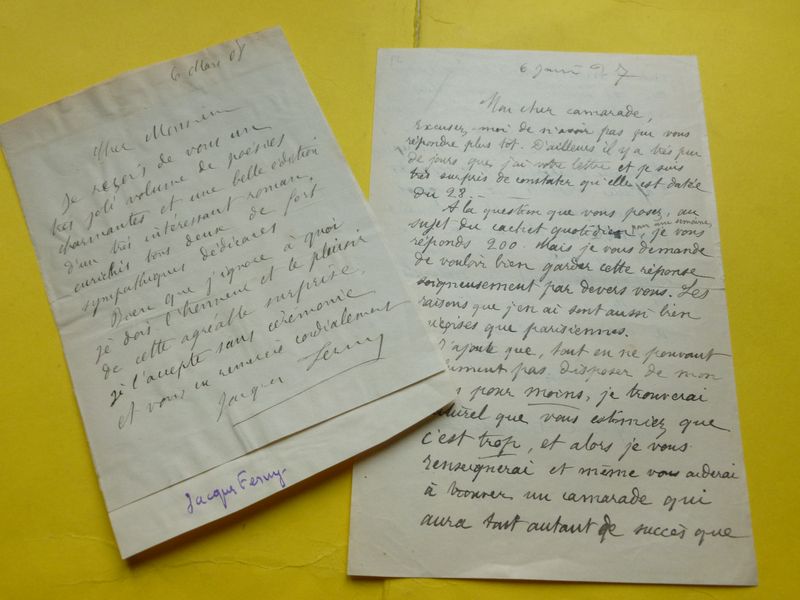 6 Mars 08
Cher Monsieur
Je reçois de vous un
très joli volume de poésies
charmantes et une belle édition
d'un très intéressant roman,
enrichis tous deux de fort
sympathiques dédicaces
Bien que j'ignore à quoi
je dois l'honneur et le plaisir
de cette agréable surprise,
je l'accepte sans cérémonie
et vous en remercie cordialement
Jacques Ferny
Jacques Ferny
6 27
Mon cher camarade,
Excusez-moi de n'avoir pas pu vous
répondre plus tôt. D'ailleurs il y a très peu
de jours que j'ai votre lettre et je suis
très surpris de constater qu'elle est datée
du 28.
A la question que vous posez, au
sujet du cachet quotidien, pour une semaine, je vous
réponds 200. Mais je vous demande
de vouloir bien garder cette réponse
soigneusement par devers vous. Les
raisons que j'en ai sont aussi bien
que parisiennes.
J'ajoute que, tout en ne pouvant
pas disposer de mon
pour moins, je trouverai
naturel que vous estimiez que
c'est trop, et alors je vous
renseignerai et même vous aiderai
à trouver un camarade qui
aura tout autant de succès que